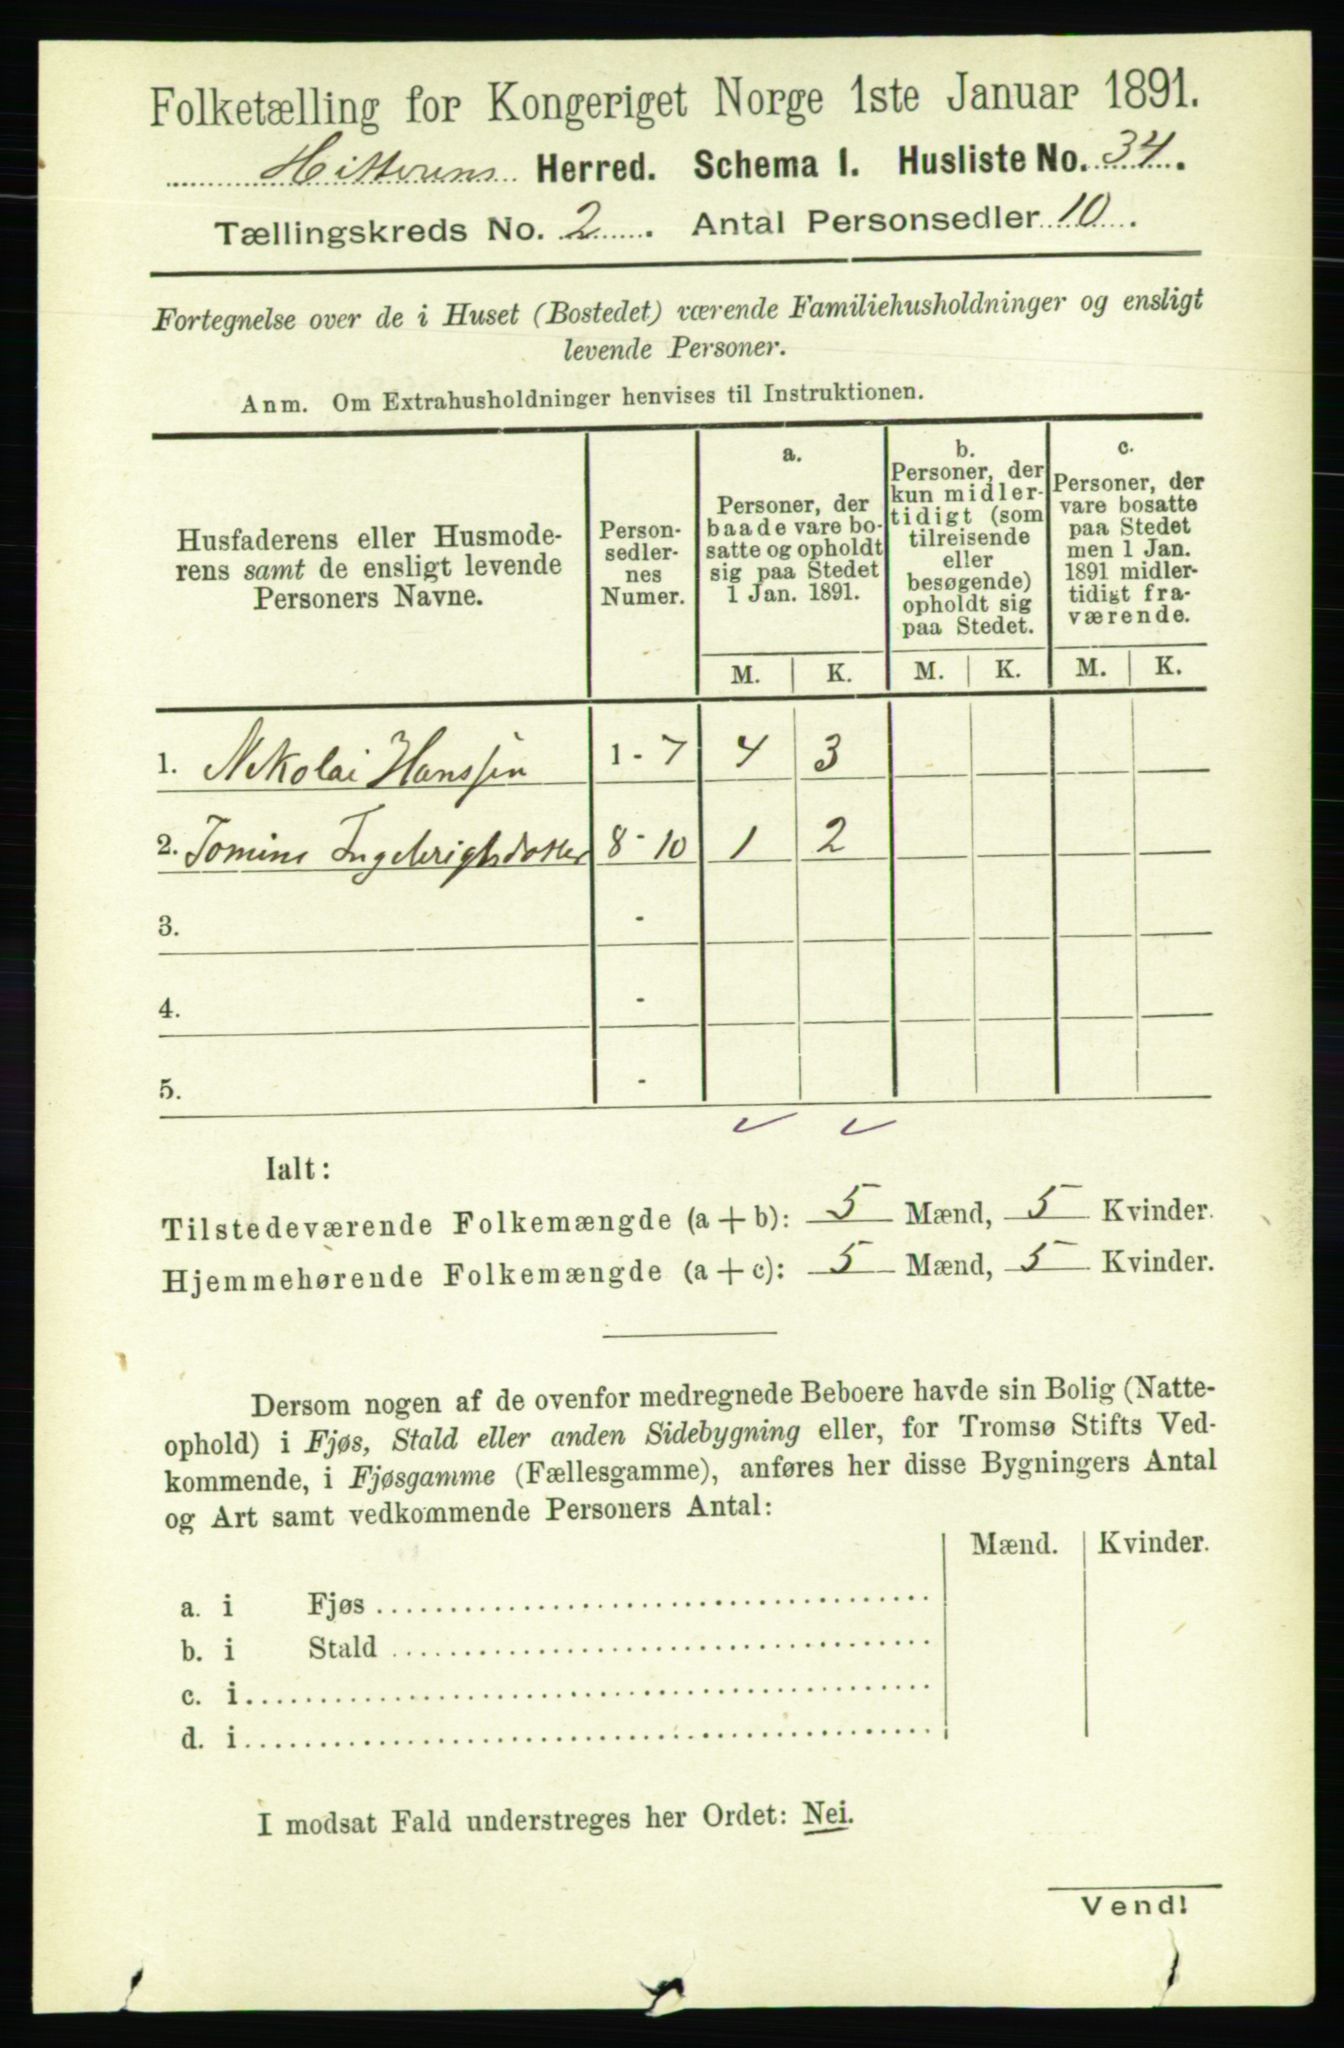 Folketælling for Kongeriget Norge 1ste Januar 1891.
Hitterens Herred. Schema 1. Husliste No. 34.
Tællingskreds No. 2. Antal Personsedler 10.
Fortegnelse over de i Huset (Bostedet) værende Familiehusholdninger og ensligt
levende Personer.
Anm. Om Extrahusholdninger henvises til Instruktionen.
Husfaderens eller Husmode-
rens samt de ensligt levende
Personers Navne.
Person-
sedler-
nes
Numer.
a.
Personer, der
baade vare bo-
satte og opholdt
sig paa Stedet
1 Jan. 1891.
b.
Personer, der
kun midler-
tidigt (som
tilreisende
eller
besøgende)
opholdt sig
paa Stedet.
c.
Personer, der
vare bosatte
paa Stedet
men 1 Jan.
1891 midler-
tidigt fra-
værende.
M. K. M. K. M. K.
1. Nikolai Hanssen 1 - 7 4 3
2. Tomine Ingebrigtsdotter 8 - 10 1 2
3. -
4. -
5. -
Ialt:
Tilstedeværende Folkemængde (a + b): 5 Mænd, 5 Kvinder.
Hjemmehørende Folkemængde (a + c): 5 Mænd, 5 Kvinder.
Dersom nogen af de ovenfor medregnede Beboere havde sin Bolig (Natte-
ophold) i Fjøs, Stald eller anden Sidebygning eller, for Tromsø Stifts Ved-
kommende, i Fjøsgamme (Fællesgamme), anføres her disse Bygningers Antal
og Art samt vedkommende Personers Antal:
Mænd. Kvinder.
a. i Fjøs
b. i Stald
c. i
d. i
I modsat Fald understreges her Ordet: Nei.
Vend!